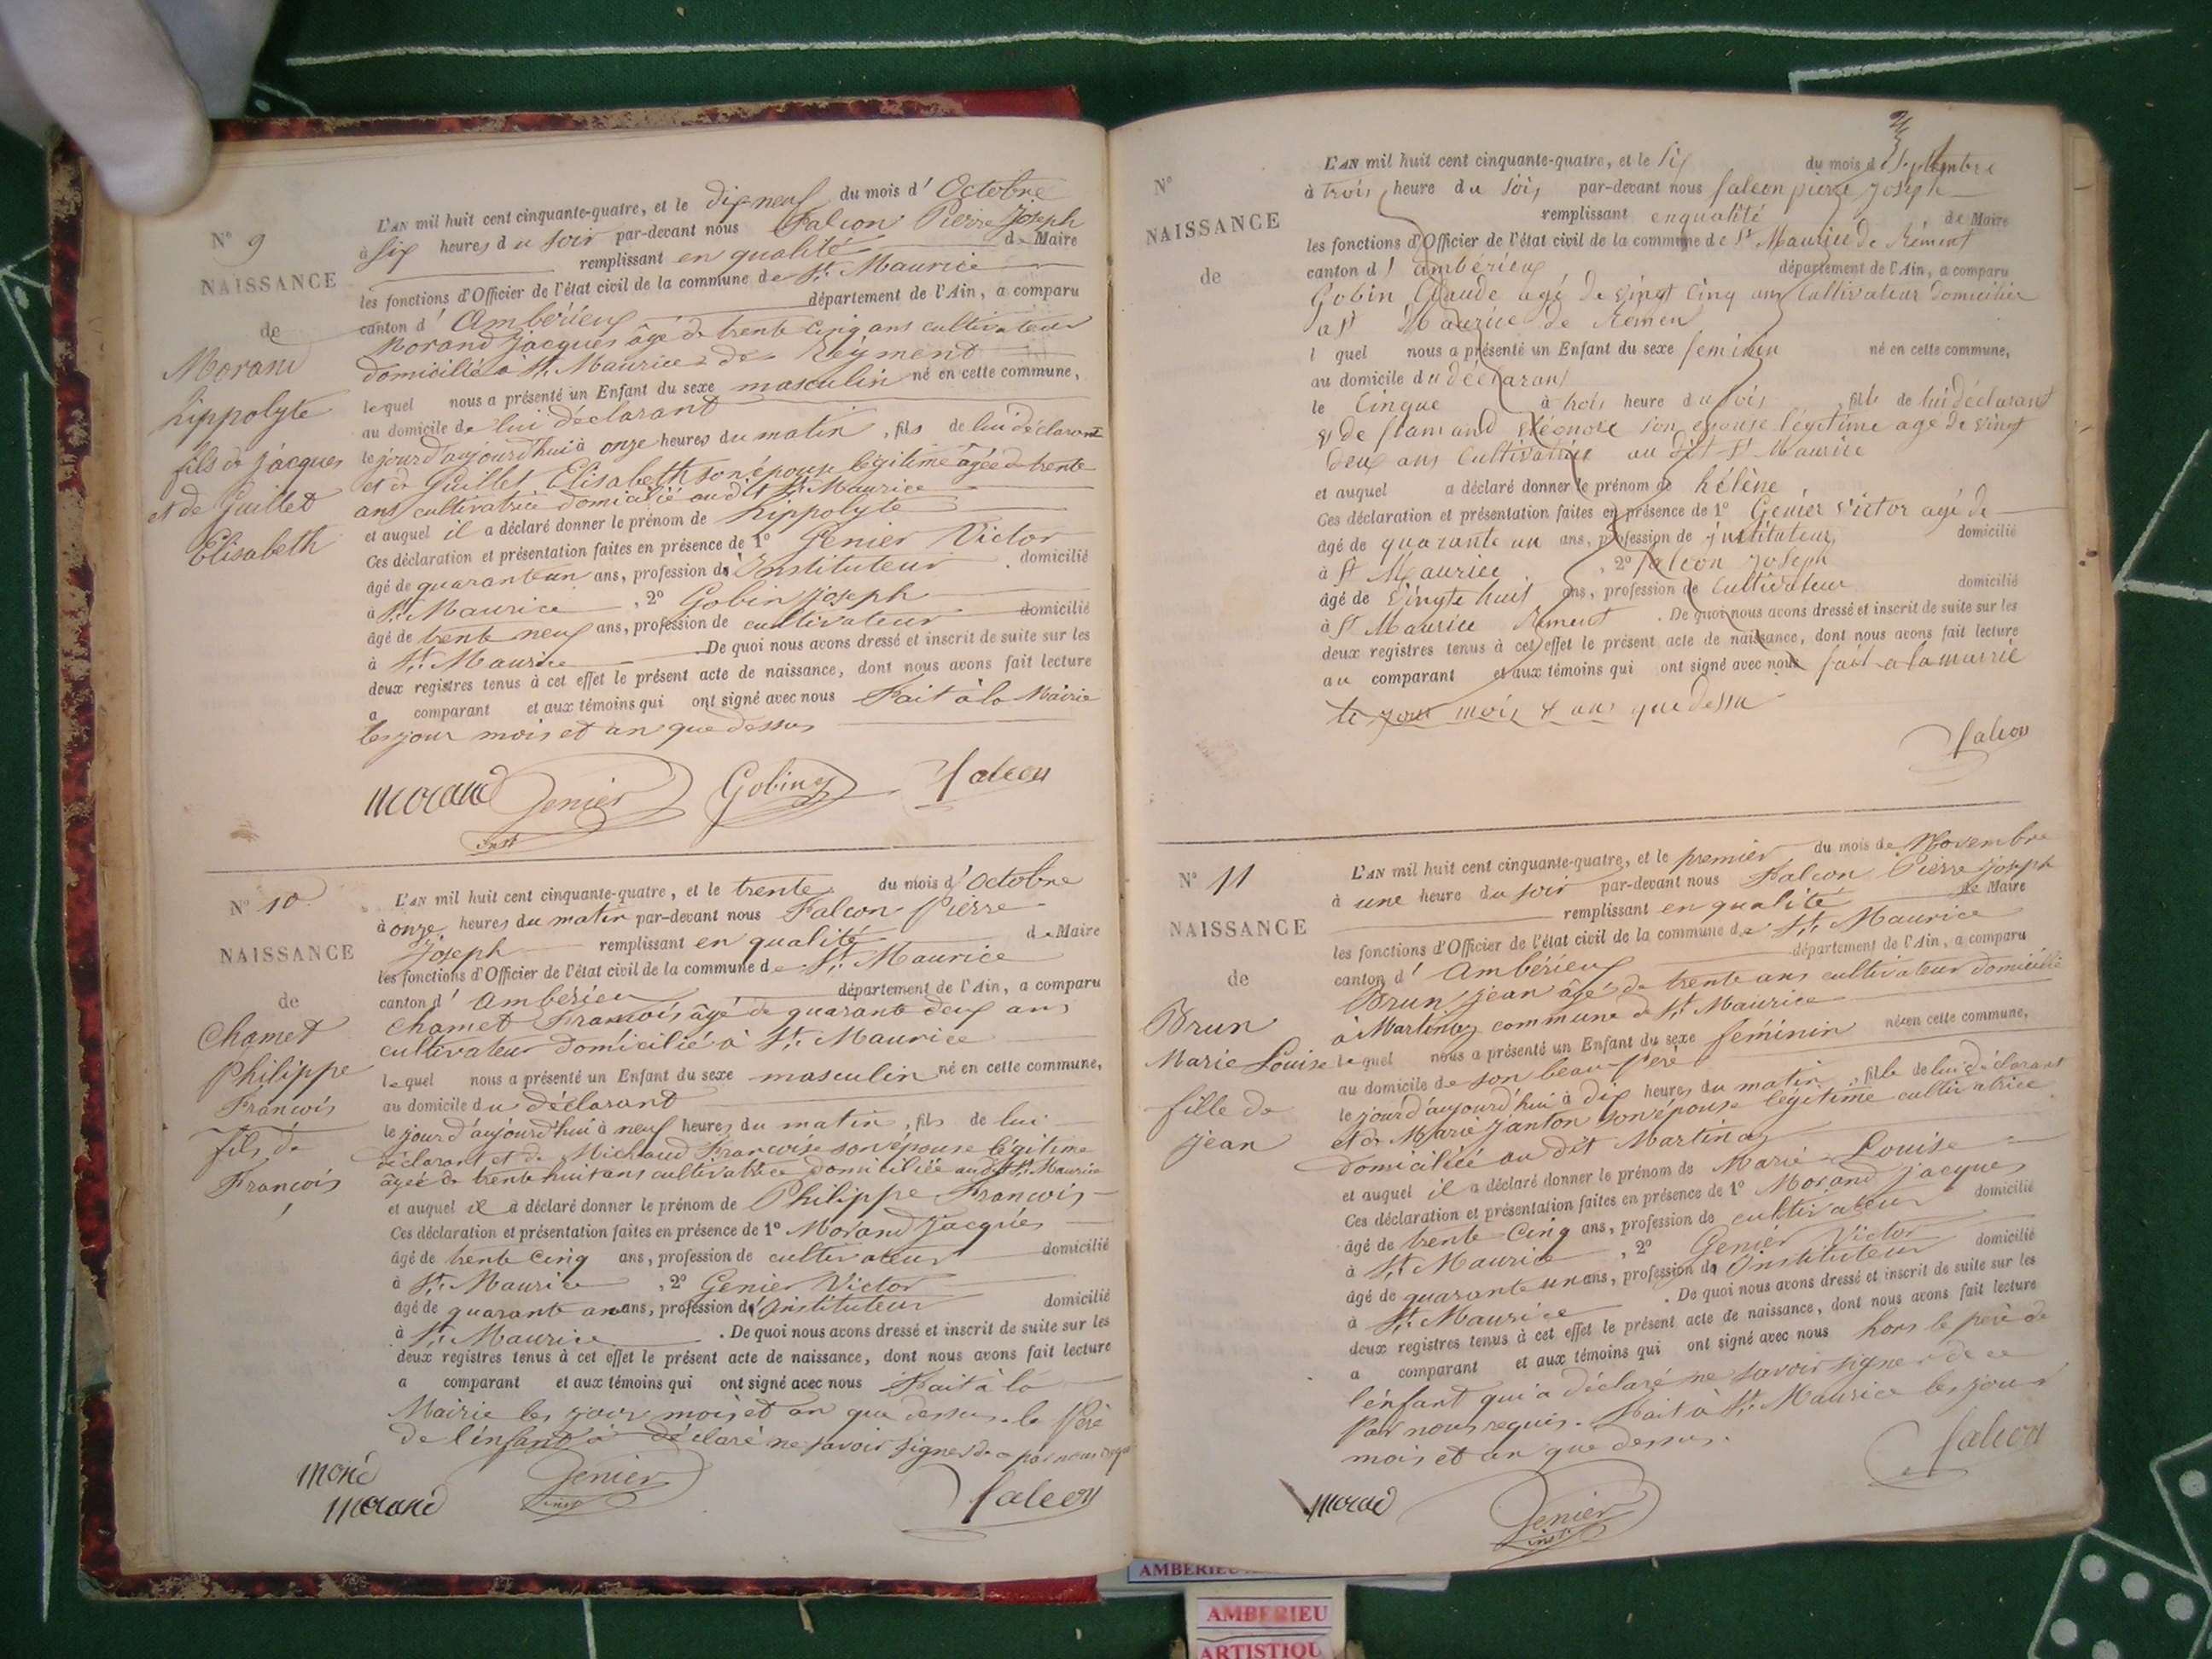 N° 9
NAISSANCE
de
Morand
hippolyte
fils de jacques
et de Guillet
Elisabeth
L'AN mil huit cent cinquante-quatre, et le dix neuf du mois d'Octobre
à six heures du soir par-devant nous Falcon Pierre Joseph
remplissant en qualité de Maire
les fonctions d'Officier de l'état civil de la commune de St. Maurice
canton d'Ambérieux département de l'Ain, a comparu
Morand jacques âgé de trente cinq ans cultivateur
domicilié à St. Maurice de Reyment
lequel nous a présenté un Enfant du sexe masculin né en cette commune,
au domicile de lui déclarant
le jour d'aujourd'hui à onze heures du matin, fils de lui déclarant
et de Guillet Elisabeth son épouse légitime âgée de trente
ans cultivatrice domicilié au dit St. Maurice
et auquel il a déclaré donner le prénom de hippolyte
Ces déclaration et présentation faites en présence de 1° Genier Victor
âgé de quarante un ans, profession d'Instituteur domicilié
à St. Maurice, 2° Gobin joseph
âgé de trente neuf ans, profession de cultivateur domicilié
à St. Maurice. De quoi nous avons dressé et inscrit de suite sur les
deux registres tenus à cet effet le présent acte de naissance, dont nous avons fait lecture
a comparant et aux témoins qui ont signé avec nous Fait à la Mairie
les jour mois et an que dessus
morand Genier Gobin falcon
inst
N° 10
NAISSANCE
de
Chamet
Philippe
François
fils de
François
L'AN mil huit cent cinquante-quatre, et le trente du mois d'Octobre
à onze heures du matin par-devant nous Falcon Pierre
Joseph remplissant en qualité de Maire
les fonctions d'Officier de l'état civil de la commune de St. Maurice
canton d'Ambérieu département de l'Ain, a comparu
Chamet François âgé de quarante deux ans
cultivateur domicilié à St. Maurice
lequel nous a présenté un Enfant du sexe masculin né en cette commune,
au domicile du déclarant
le jour d'aujourd'hui à neuf heures du matin, fils de lui
déclarant et de Michaud Françoise son épouse légitime
âgée de trente huit ans cultivatrice domiciliée au dit St. Maurice
et auquel il a déclaré donner le prénom de Philippe François
Ces déclaration et présentation faites en présence de 1° Morand jacques
âgé de trente cinq ans, profession de cultivateur domicilié
à St. Maurice, 2° Genier Victor
âgé de quarante un ans, profession d'Instituteur domicilié
à St. Maurice. De quoi nous avons dressé et inscrit de suite sur les
deux registres tenus à cet effet le présent acte de naissance, dont nous avons fait lecture
a comparant et aux témoins qui ont signé avec nous Fait à la
Mairie les jour mois et an que dessus. le Père
de l'enfant a déclaré ne savoir signer de ce par nous requis
morand Genier falcon
inst
N°
NAISSANCE
de
L'AN mil huit cent cinquante-quatre, et le six du mois de Septembre
à trois heure du soir par-devant nous falcon pierre joseph
remplissant enqualité de Maire
les fonctions d'Officier de l'état civil de la commune de St Maurice de Rément
canton d'ambérieux département de l'Ain, a comparu
Gobin Claude agé de vingt cinq ans Cultivateur domicilier
a St Maurice de Remen
l quel nous a présenté un Enfant du sexe feminin né en cette commune,
au domicile du déclarant
le Cinque à trois heure du soir, fille de lui déclarant
et de flamand Eléonore son epouse légitime agé de vingt
deux ans Cultivatrice au dit St Maurice
et auquel a déclaré donner le prénom de hélène
Ces déclaration et présentation faites en présence de 1° Genier Victor agé de
âgé de quarante un ans, profession de justituteur domicilié
à St Maurice, 2° falcon joseph
âgé de Vingte huit ans, profession de Cultivateur domicilié
à St Maurice Rement. De quoi nous avons dressé et inscrit de suite sur les
deux registres tenus à cet effet le présent acte de naissance, dont nous avons fait lecture
au comparant et aux témoins qui ont signé avec nous fait a la mairie
le jour mois & ans que dessu
falcon
N° 11
NAISSANCE
de
Brun
Marie Louise
fille de
jean
L'AN mil huit cent cinquante-quatre, et le premier du mois de Novembre
à une heure du soir par-devant nous Falcon Pierre joseph
remplissant en qualité de Maire
les fonctions d'Officier de l'état civil de la commune de St. Maurice
canton d'Ambérieux département de l'Ain, a comparu
Brun jean âgé de trente ans cultivateur domicilié
à Martinaz commune de St. Maurice
lequel nous a présenté un Enfant du sexe féminin née en cette commune,
au domicile de son beau Père
le jour d'aujourd'hui à dix heures du matin, fille de lui déclarant
et de Marie Janton son épouse légitime cultivatrice
domiciliée au dit Martinaz
et auquel il a déclaré donner le prénom de Marie Louise
Ces déclaration et présentation faites en présence de 1° Morand jacques
âgé de trente Cinq ans, profession de cultivateur domicilié
à St Maurice, 2° Genier Victor
âgé de quarante un ans, profession d'Instituteur domicilié
à St. Maurice. De quoi nous avons dressé et inscrit de suite sur les
deux registres tenus à cet effet le présent acte de naissance, dont nous avons fait lecture
a comparant et aux témoins qui ont signé avec nous hors le père de
l'enfant qui a déclaré ne savoir signer de ce
Par nous requis. Fait à St. Maurice les jour
mois et an que dessus.
morad Genier falcon
inst
AMBERIEU
AMBERIEU
ARTISTIQU